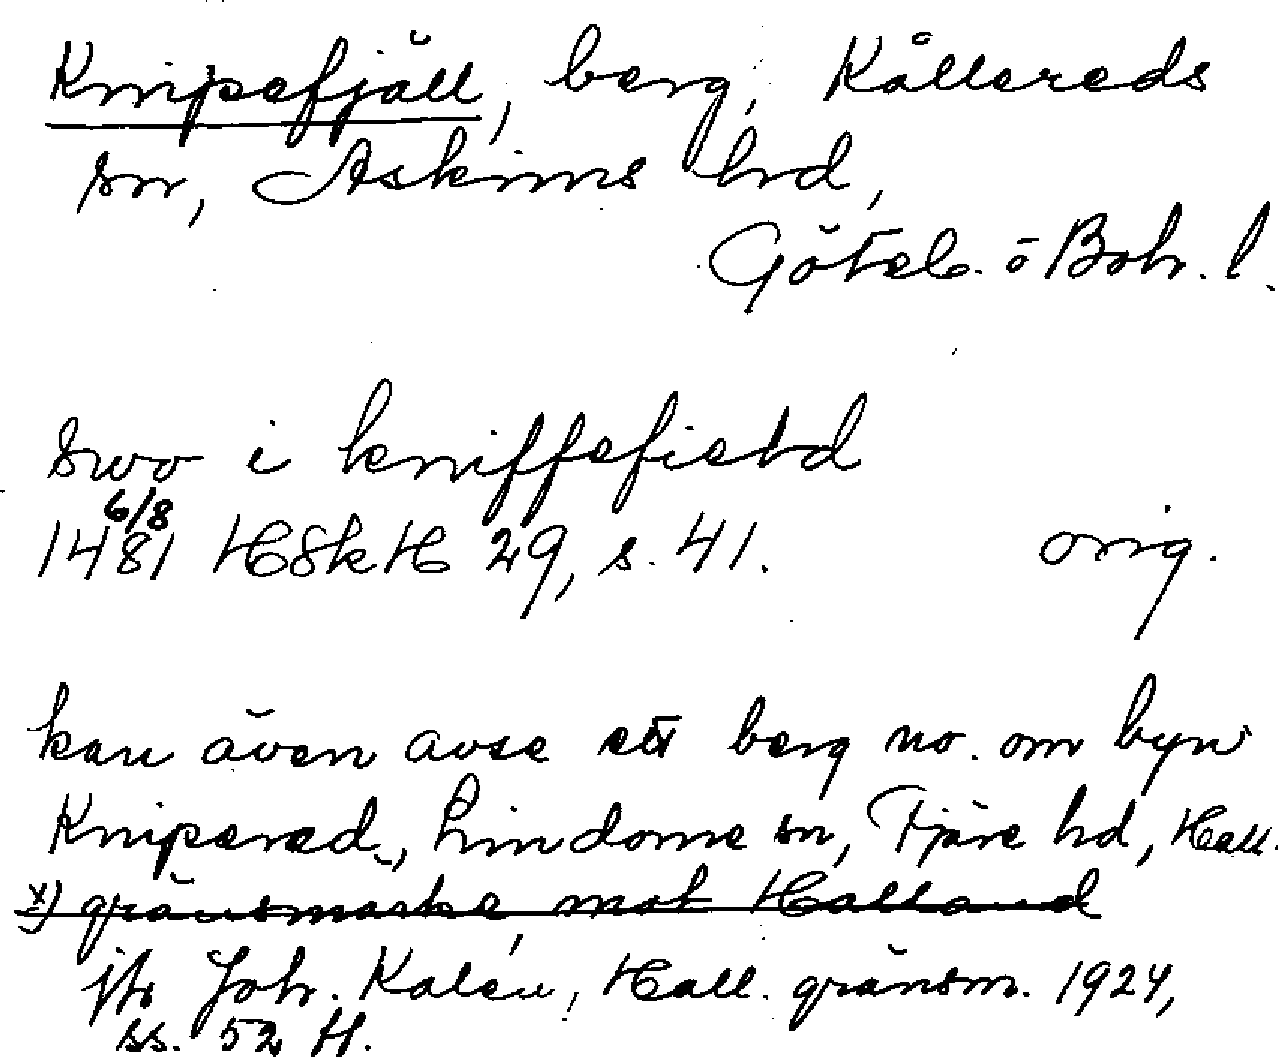 Knipefjäll, berg, Kållereds
sn, Askims hrd,
Göteb. o Boh. l.
swo i kniffefietd
6/8
1481 HSkH 29, s. 41. orig.
kan även avse ett berg no. om byn
Knipered, Lindome sn, Fjäre hd, Hall.
x) gränsmärke mot Halland
jfr Joh. Kalén, Hall. gränsm. 1924,
ss. 52 ff.